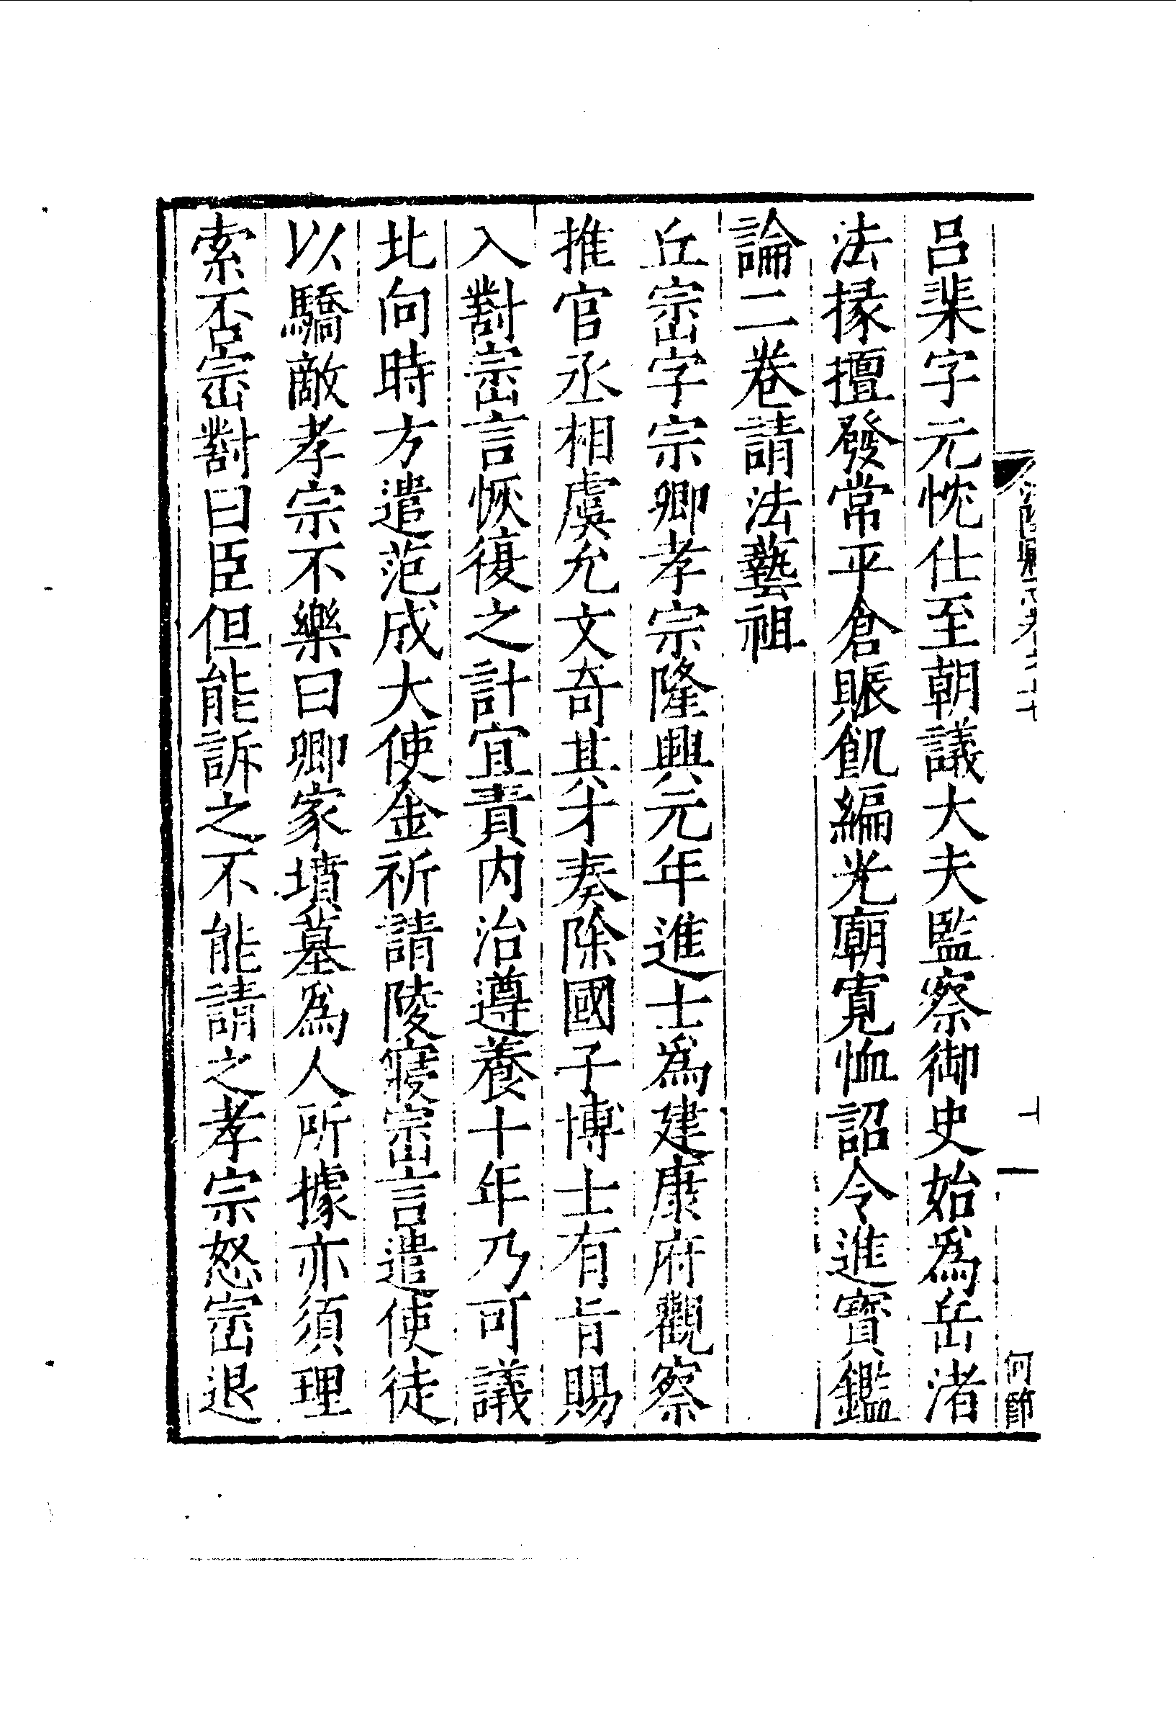 呂棐字元忱仕至朝議大夫監察御史始爲岳渚
法掾擅發常平倉賑飢編光廟寬恤詔令進寶鑑
論二卷請法藝祖
丘崈字宗卿孝宗隆興元年進士爲建康府觀察
推官丞相虞允文奇其才奏除國子博士有旨賜
入對崈言恢復之計宜責内治遵養十年乃可議
北向時方遣范成大使金祈請陵寢崈言遣使徒
以驕敵孝宗不樂曰卿家墳墓爲人所據亦須理
索否崈對曰臣但能訴之不能請之孝宗怒崈退
何節